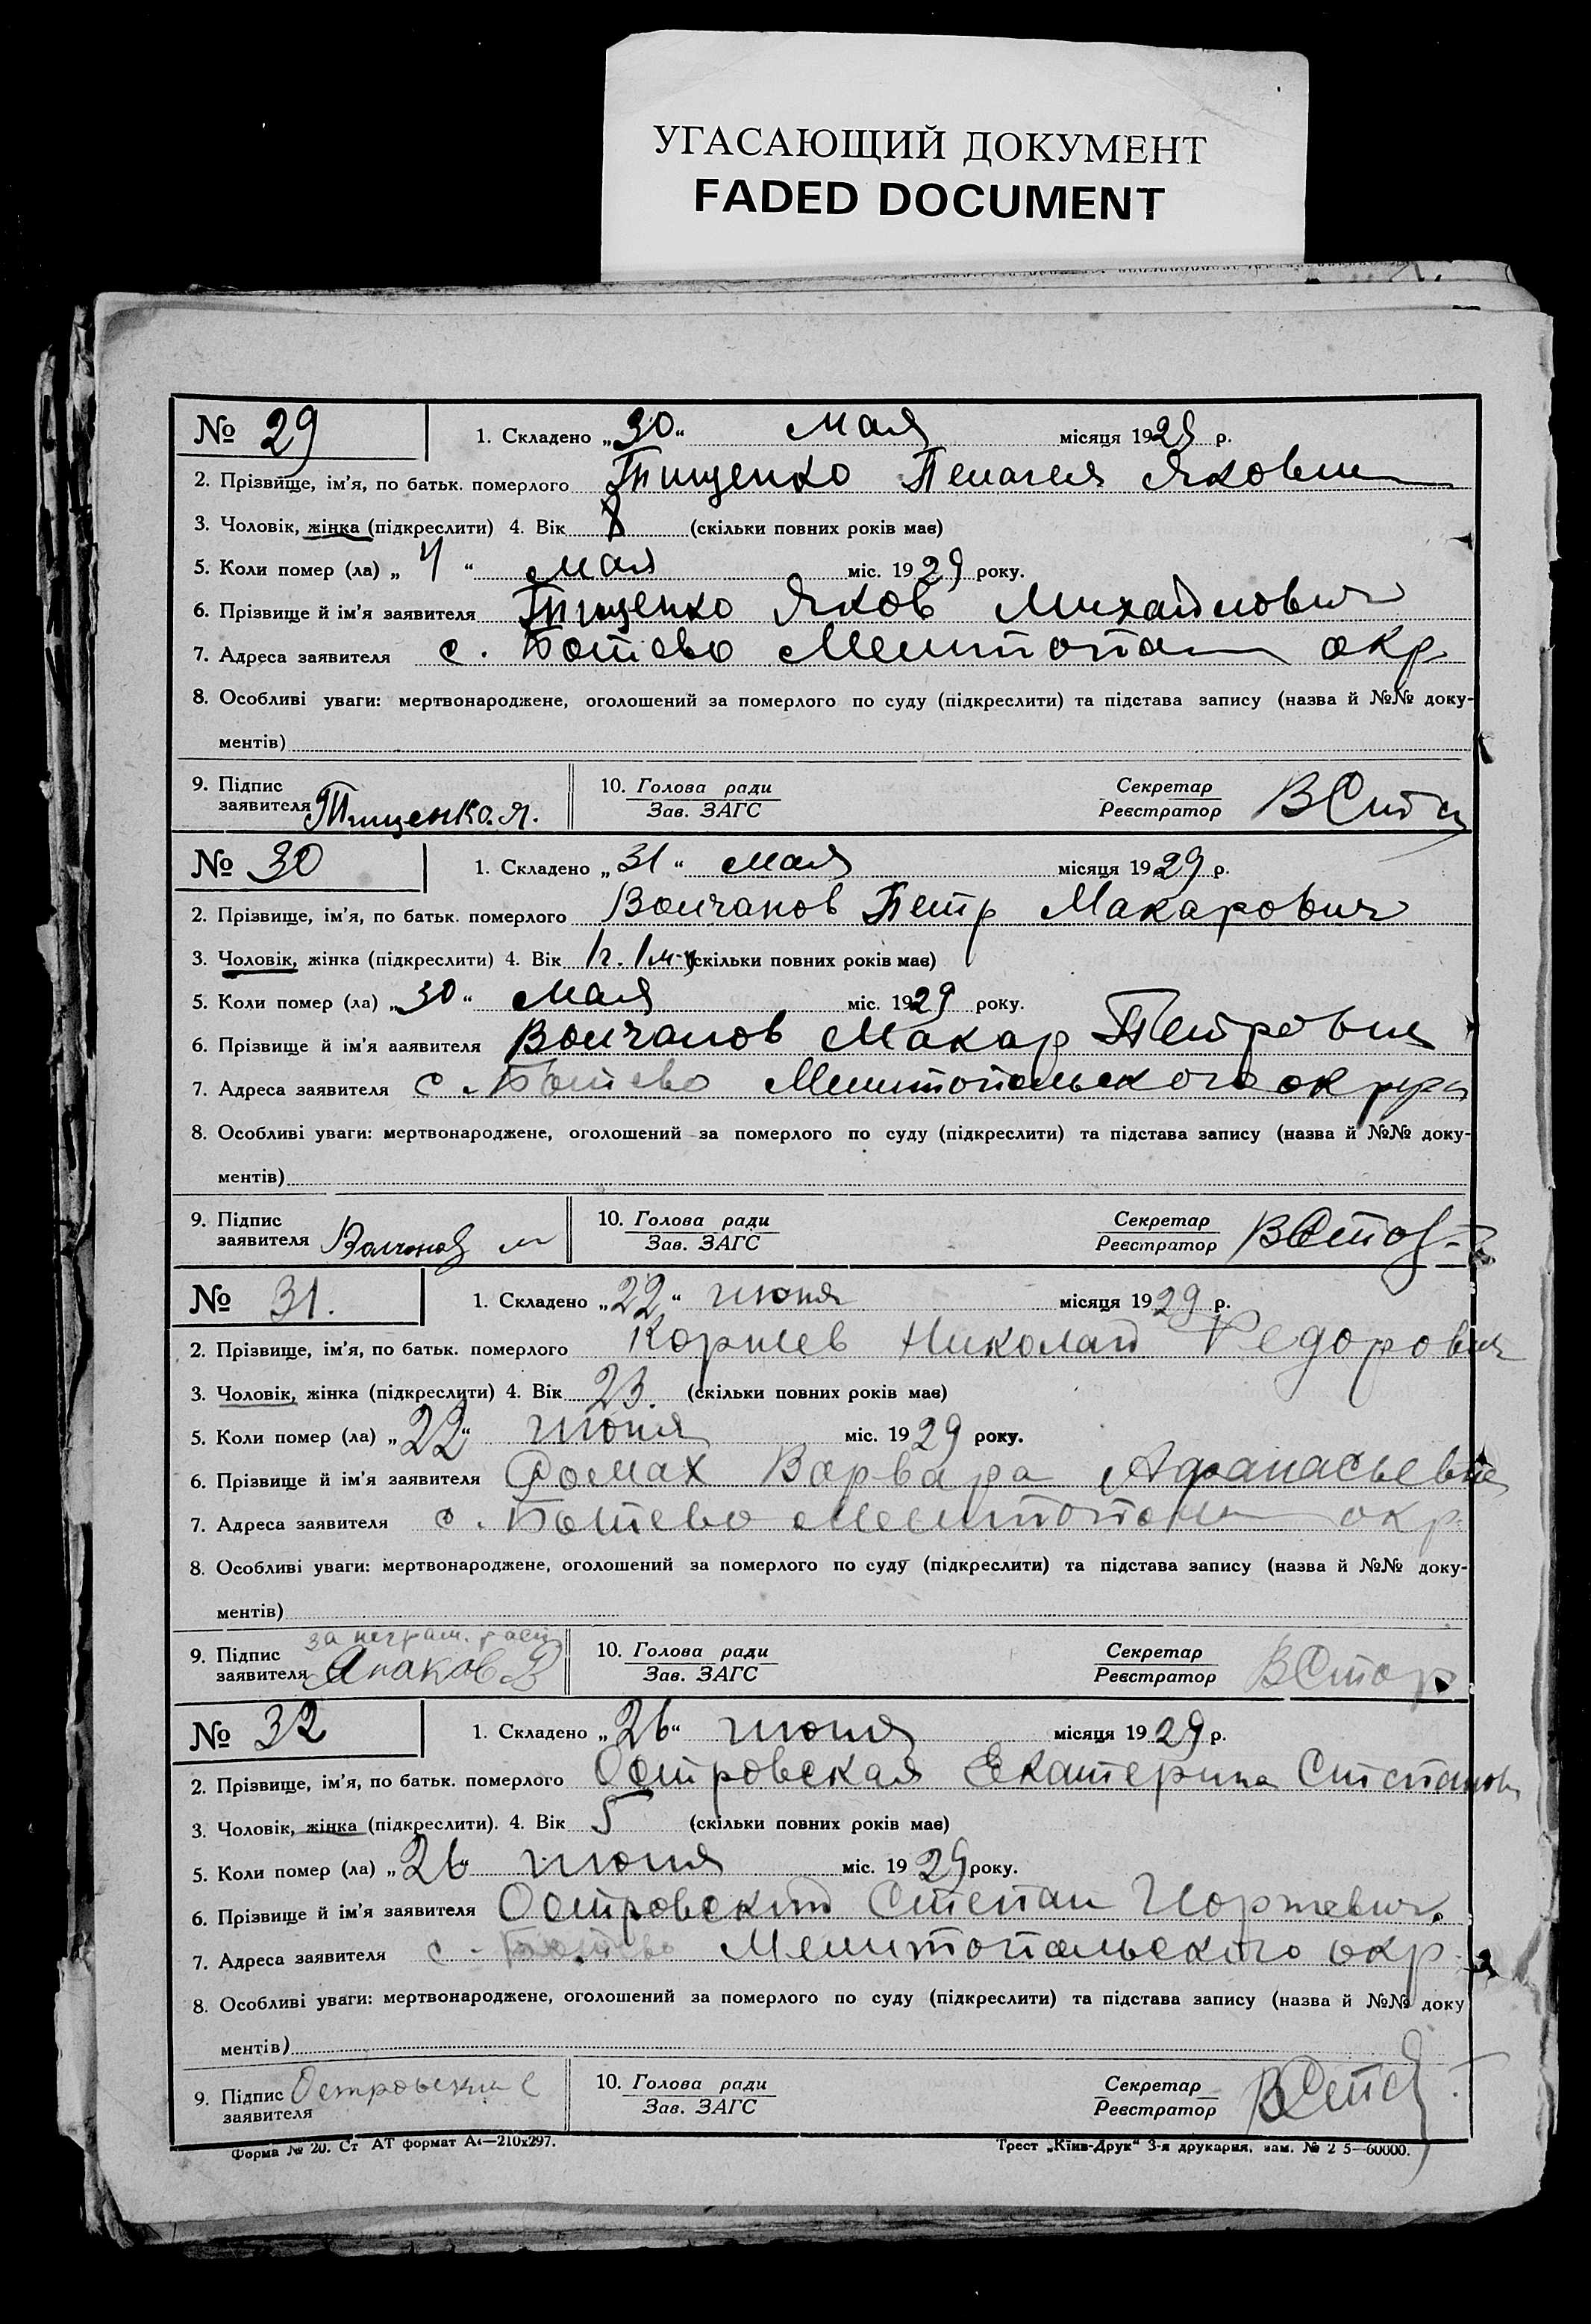 УГАСАЮЩИЙ ДОКУМЕНТ
FADED DOCUMENT
№ 29 1. Складено „30“ мая місяця 1929 р.
2. Прізвище, ім'я, по батьк. померлого Тищенко Пелагея Яковл
3. Чоловік, жінка (підкреслити) 4. Вік 8 (скільки повних років має)
5. Коли помер (ла) „ “ мая міс. 1929 року.
6. Прізвище й ім'я заявителя Тищенко Яков Михайлович
7. Адреса заявителя с. Ботево Мелитопол окр
8. Особливі уваги: мертвонароджене, оголошений за померлого по суду (підкреслити) та підстава запису (назва й №№ доку-
ментів)
9. Підпис заявителя Тищенко.Я. 10. Голова ради Зав. ЗАГС Секретар Реєстратор
№ 30 1. Складено „31“ мая місяця 1929 р.
2. Прізвище, ім'я, по батьк. померлого Волчанов Петр Макарович
3. Чоловік, жінка (підкреслити) 4. Вік 1г. 1м-ц (скільки повних років має)
5. Коли помер (ла) „30“ мая міс. 1929 року.
6. Прізвище й ім'я заявителя Волчанов Макар Петрович
7. Адреса заявителя с. Ботево Мелитопольского округа
8. Особливі уваги: мертвонароджене, оголошений за померлого по суду (підкреслити) та підстава запису (назва й №№ доку-
ментів)
9. Підпис заявителя Волчанов м 10. Голова ради Зав. ЗАГС Секретар Реєстратор
№ 31. 1. Складено „22“ июня місяця 1929 р.
2. Прізвище, ім'я, по батьк. померлого Николай Федорович
3. Чоловік, жінка (підкреслити) 4. Вік 23. (скільки повних років має)
5. Коли помер (ла) „22“ июня міс. 1929 року.
6. Прізвище й ім'я заявителя Варвара Афанасьевна
7. Адреса заявителя с. Ботево Мелитопол окр.
8. Особливі уваги: мертвонароджене, оголошений за померлого по суду (підкреслити) та підстава запису (назва й №№ доку-
ментів)
за неграм. расп
9. Підпис заявителя 10. Голова ради Зав. ЗАГС Секретар Реєстратор
№ 32 1. Складено „26“ июня місяця 1929 р.
2. Прізвище, ім'я, по батьк. померлого Островская Екатерина Степанов
3. Чоловік, жінка (підкреслити). 4. Вік 5 (скільки повних років має)
5. Коли помер (ла) „26“ июня міс. 1929 року.
6. Прізвище й ім'я заявителя Островский Степан
7. Адреса заявителя с. Ботево Мелитопольского окр.
8. Особливі уваги: мертвонароджене, оголошений за померлого по суду (підкреслити) та підстава запису (назва й №№ доку
ментів)
9. Підпис заявителя Островский С 10. Голова ради Зав. ЗАГС Секретар Реєстратор
Форма № 20. Ст АТ формат А4—210x297. Трест „Київ-Друк“ 3-я друкарня, зам. № 2 5—60000.